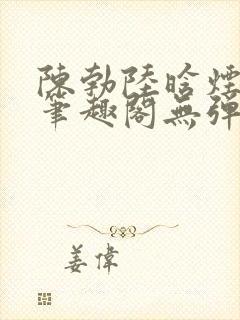 陳勃陸晗煙
筆趣閣無彈
姜偉